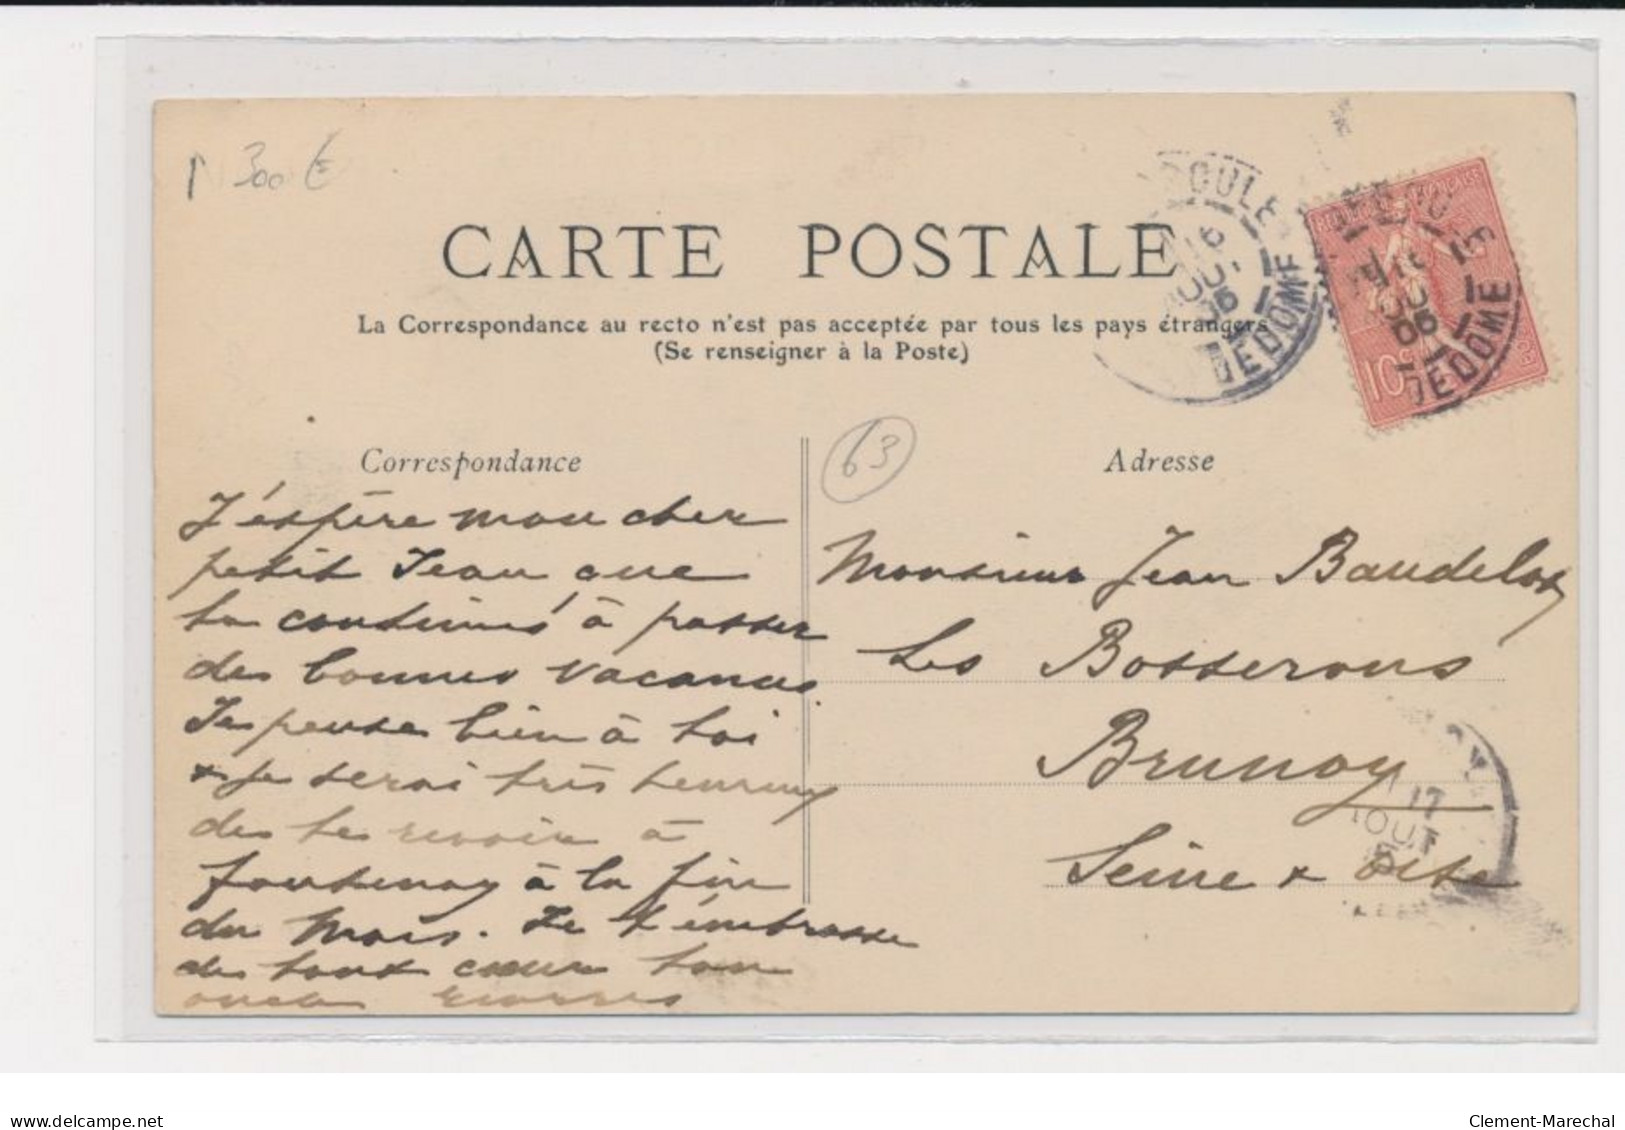 300 €
CARTE POSTALE
La Correspondance au recto n'est pas acceptée par tous les pays étrangers
(Se renseigner à la Poste)
BOURBOULE
16
AOUT
06
DE DOME
10c
Correspondance
J'éspère mon cher
petit Jean que
tu continues à passer
des bonnes vacances.
Je pense bien à toi
& je serai très heureux
de te revoir à
fontenay à la fin
du mois. Je t'embrasse
de tout cœur ton
oncle
63
Adresse
Monsieur Jean Baudelot
Les Bosserons
Brunoy
Seine & Oise
17
AOUT
delcampe.net
Clement-Marechal